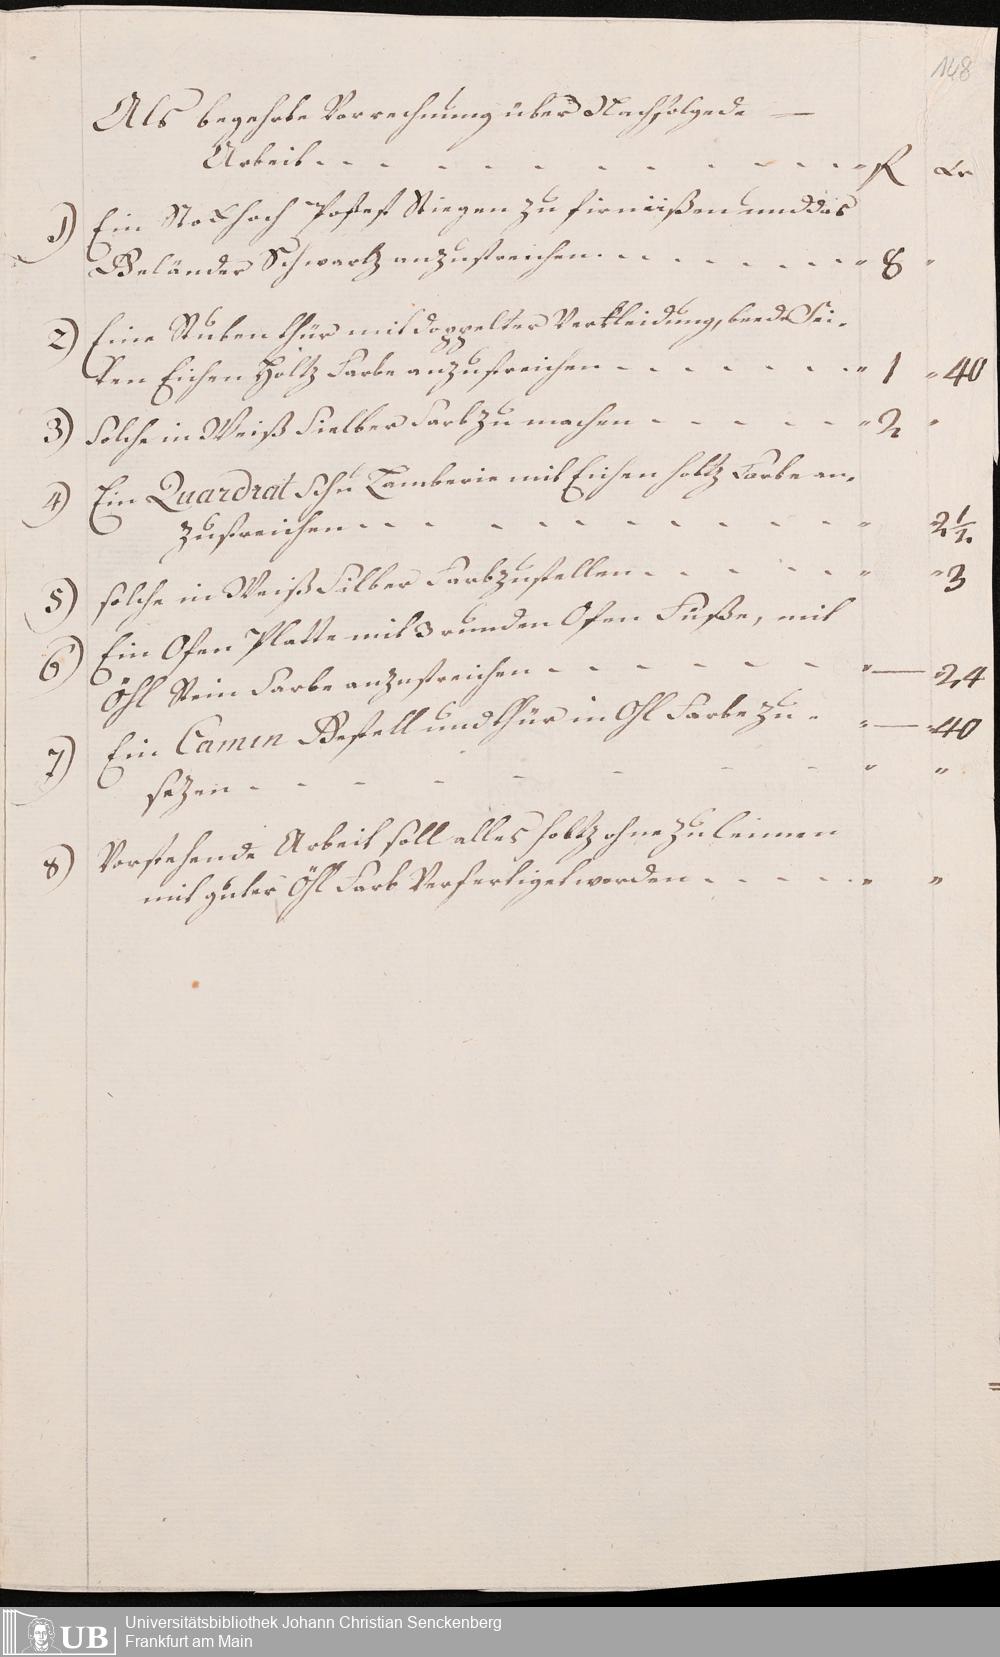 148
Als begehrte Vorrechnung über Nachfolgede —
Arbeit - - - - - - - - - - - fl xr
1) Ein Stockhoch Stiegen zu firnüißen und das
Geländer Schwartz anzustreichen - - - - - - - " 8 "
2) Eine Stuben thür mit doppelter Verkleidung, beede Sei-
ten Eichen Holtz Farbe anzustreichen - - - - - - - " 1 " 40
3) Solche in Weiß Sielber Farb zu machen - - - - - " 2 "
4) Ein Quardrat Schu Lamberie mit Eichen holtz Farbe an-
zustreichen - - - - - - - - - - " 2 1/2
5) solche in Weiß Silber Farb zu stellen - - - - - " " 3
6) Ein Ofen Platte mit 3 runden Ofen Füße, mit
Öhl Stein Farbe anzustreichen - - - - - - " — " 24
7) Ein Camin Gestell und thür in Ohl Farbe zu - " — " 40
sezen - - - - - - - " "
8) Vorstehende Arbeit soll alles holtz ohne zu leimen
mit guter Öhl Farb Verfertiget werden - - - - - " "
UB
Universitätsbibliothek Johann Christian Senckenberg
Frankfurt am Main